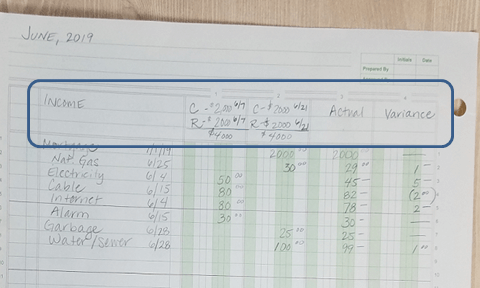 JUNE, 2019
Initials Date
Prepared By
1 2 3 4
INCOME C-$2000 6/7 C-$2000 6/21 Actual Variance
R-$2000 6/7 R-$2000 6/21
$4000 $4000
Mortgage 7/1/19 2000 00 2000 —
Nat. Gas 6/25 30 00 29 00 1 —
Electricity 6/4 50 00 45 — 5 —
Cable 6/15 80 00 82 — (2 00)
Internet 6/4 80 00 78 — 2 —
Alarm 6/15 30 00 30 —
Garbage 6/28 25 00 25 — —
Water/Sewer 6/28 100 00 99 — 1 00